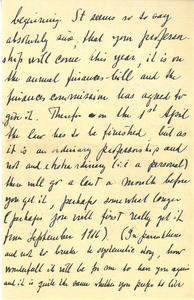 beginning. It seems so to say
absolutely sure, that your professor-
ship will come this year, it is on
the annual finances-bill and the
finances commission has agreed to
give it. Therefore on the 1st April
the law has to be finished, but as
it is an ordinary professorship and
not and (i:e a personal)
then will go a least a month before
you get it, perhaps somewhat longer
(perhaps you will first really get it
from September 1916) (In parenthesis
and not to break the systematic story, how
wonderfull it will be for me to hear you again
and it is quite the same whether you prefer to live